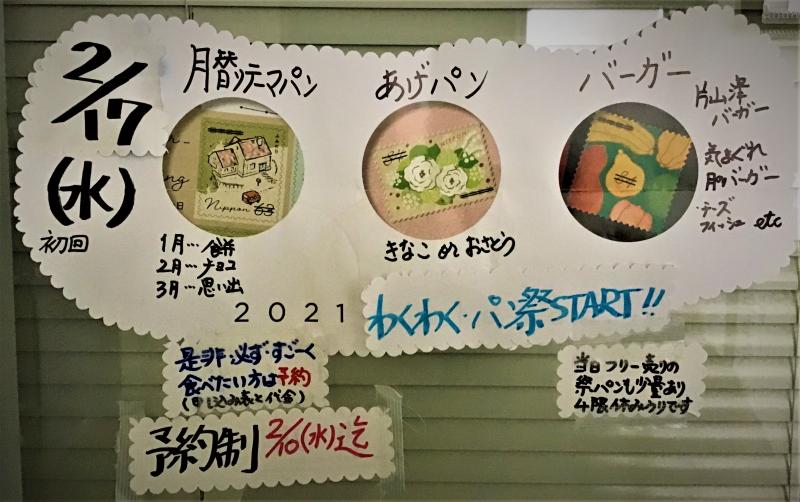 2/17
(水)
初回
月替りテーマパン
1月…餅
2月…チョコ
3月…思い出
あげパン
きなこ or おさとう
バーガー
片山津
バーガー
気まぐれ
月バーガー
チーズ
フィッシュ etc
Nippon 63
2021
わくわく・パン祭START!!
是非・必ず・すご〜く
食べたい方は予約
(申し込み表と代金)
予約制 2/10(水)迄
当日フリー売りの
祭パンも少量あり
4限休みうりです